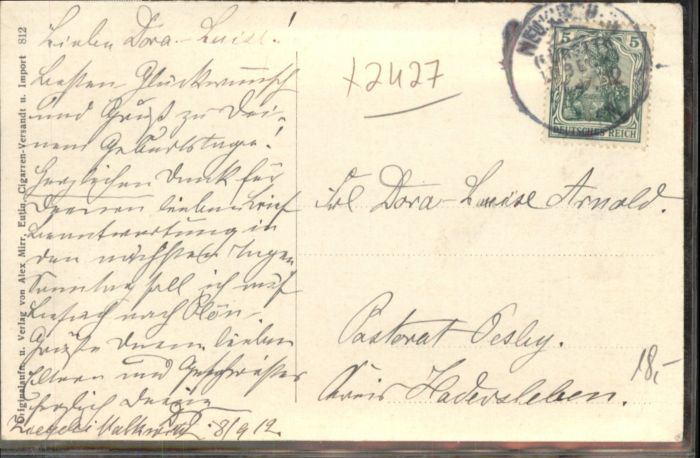 Liebe Dora-Luise!
Besten Glückwunsch
und Gruß zu Dei-
nem Geburtstage!
Herzlichen Dank für
Deinen lieben Brief
Beantwortung in
den nächsten Tagen
Sonntag soll ich auf
Besuch nach Plön.
Grüße Deine lieben
Eltern und Geschwister
herzlich Deine
8/9 12.
Originalaufn. u. Verlag von Alex Mirr, Eutin Cigarren-Versandt u. Import 812
+2427
5 5
DEUTSCHES REICH
Frl Dora-Luise Arnold.
Pastorat Oesby.
Kreis Hadersleben.
18,-